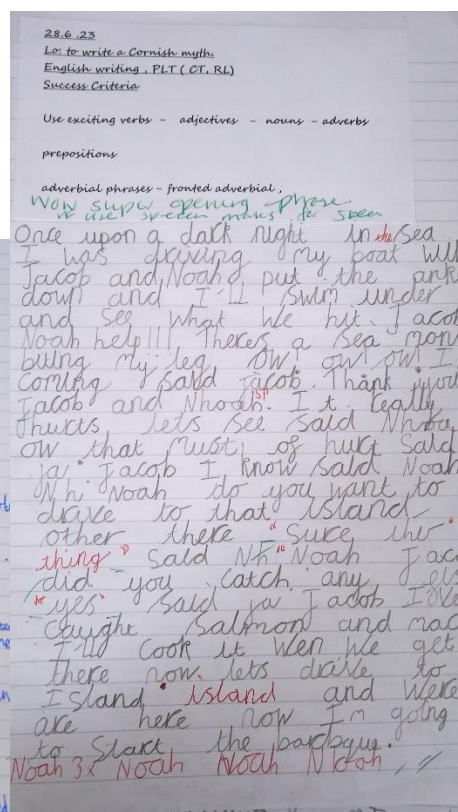 28.6.23
Lo: to write a Cornish myth.
English writing, PLT ( CT, RL)
Success Criteria
Use exciting verbs - adjectives - nouns - adverbs
prepositions
adverbial phrases - fronted adverbial,
Wow super opening phrase.
use speech marks for
Once upon a dark night in the sea
I was driving my boat
Jacob and Noah put the
down and I'll swim under
and see what we hit. Jacob
Noah help!!! Theres a sea
biting my leg ow! ow! ow! I
coming said jacob. Thank you
Jacob and Nhoah. sp It really
thurts, lets see said
ow that must of hurt said
ja Jacob I know said Noah
Nh Noah do you want to
drive to that island
other there " Sure, the "
thing " said Nh Noah
did you catch any
"yes" said ja Jacob I've
caught salmon and
I'll cook it wen we get
there now. lets drive to
Island island and were
are here now Im going
to start the barbque.
Noah 3x Noah Noah Noah